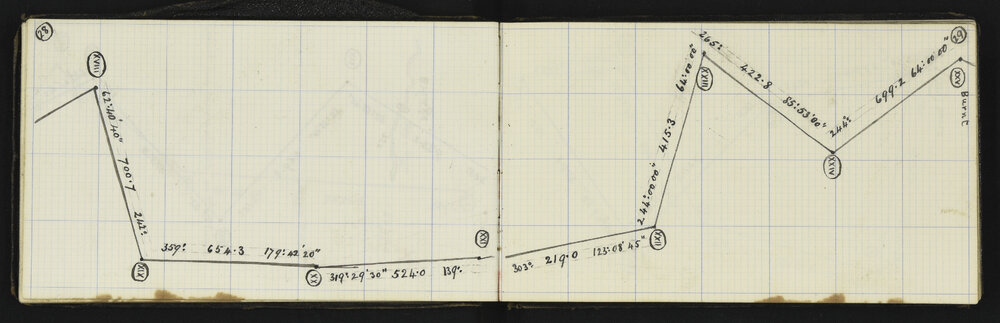 28
XVIII
62°:40'40" 700.7 242°:
XIX
359°: 654.3 179°:42'20"
XX
319°:29'30" 524.0 139°:
XXI
303°: 219.0 123°:08'45"
XXII
244°:00'00" 415.3 64°:00'00"
XXIII
265°: 422.8 85°:53'00"
XXIV
244°: 699.2 64°:00'00"
29
XXV
Burnt